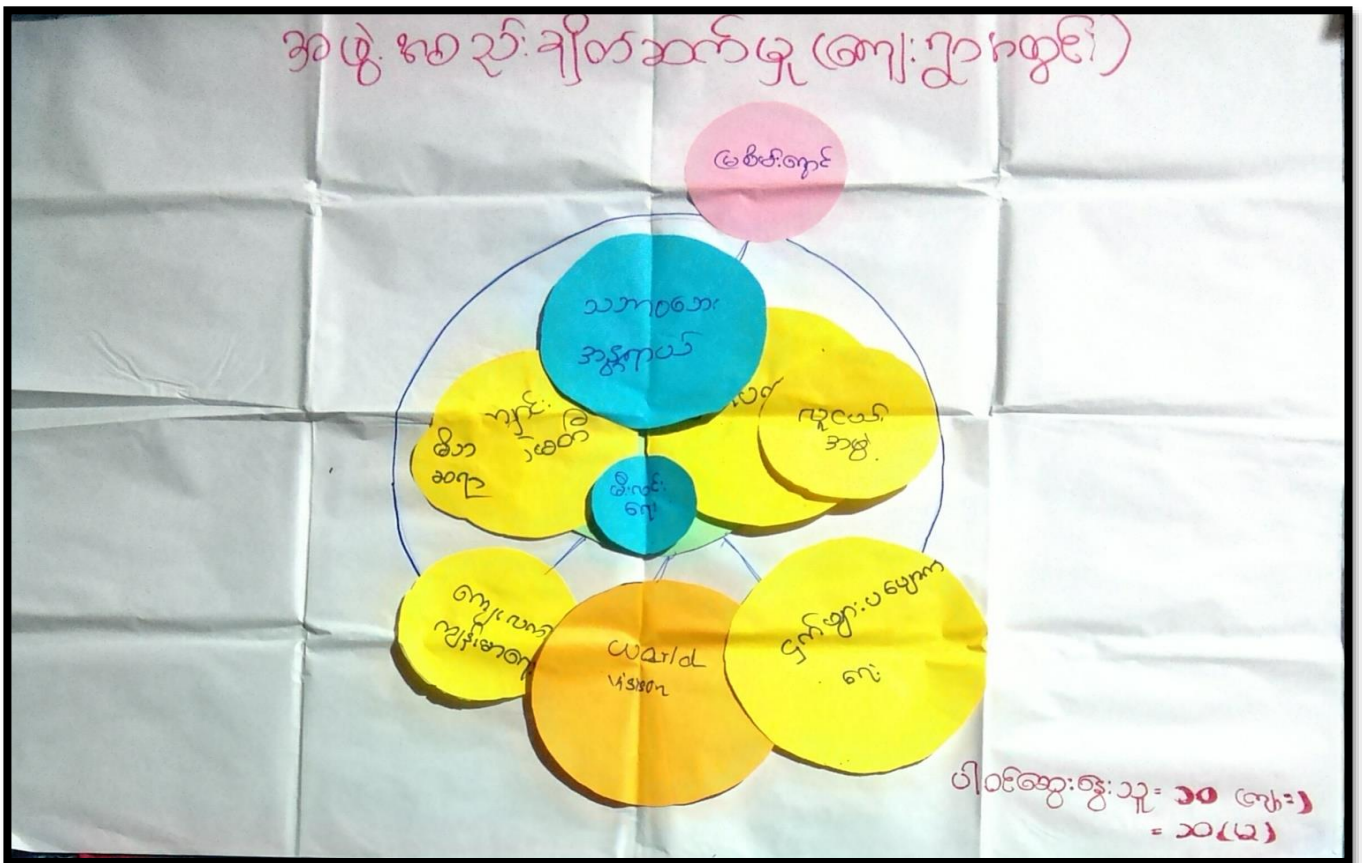 အဖွဲ့အစည်းချိတ်ဆက်မှု (ကျေးရွာအတွင်း)
မြစိမ်းရောင်
သဘာဝဘေး
အန္တရာယ်
ကျောင်း
မိဘ
ဆရာ
လူငယ်
အဖွဲ့
မီးလင်း
ရေး
ကျေးလက်
ကျန်းမာရေး
World
Vision
ငှက်ဖျားပပျောက်
ရေး
ပါဝင်ဆွေးနွေးသူ = ၁၀ (ကျား)
= ၁၀ (မ)